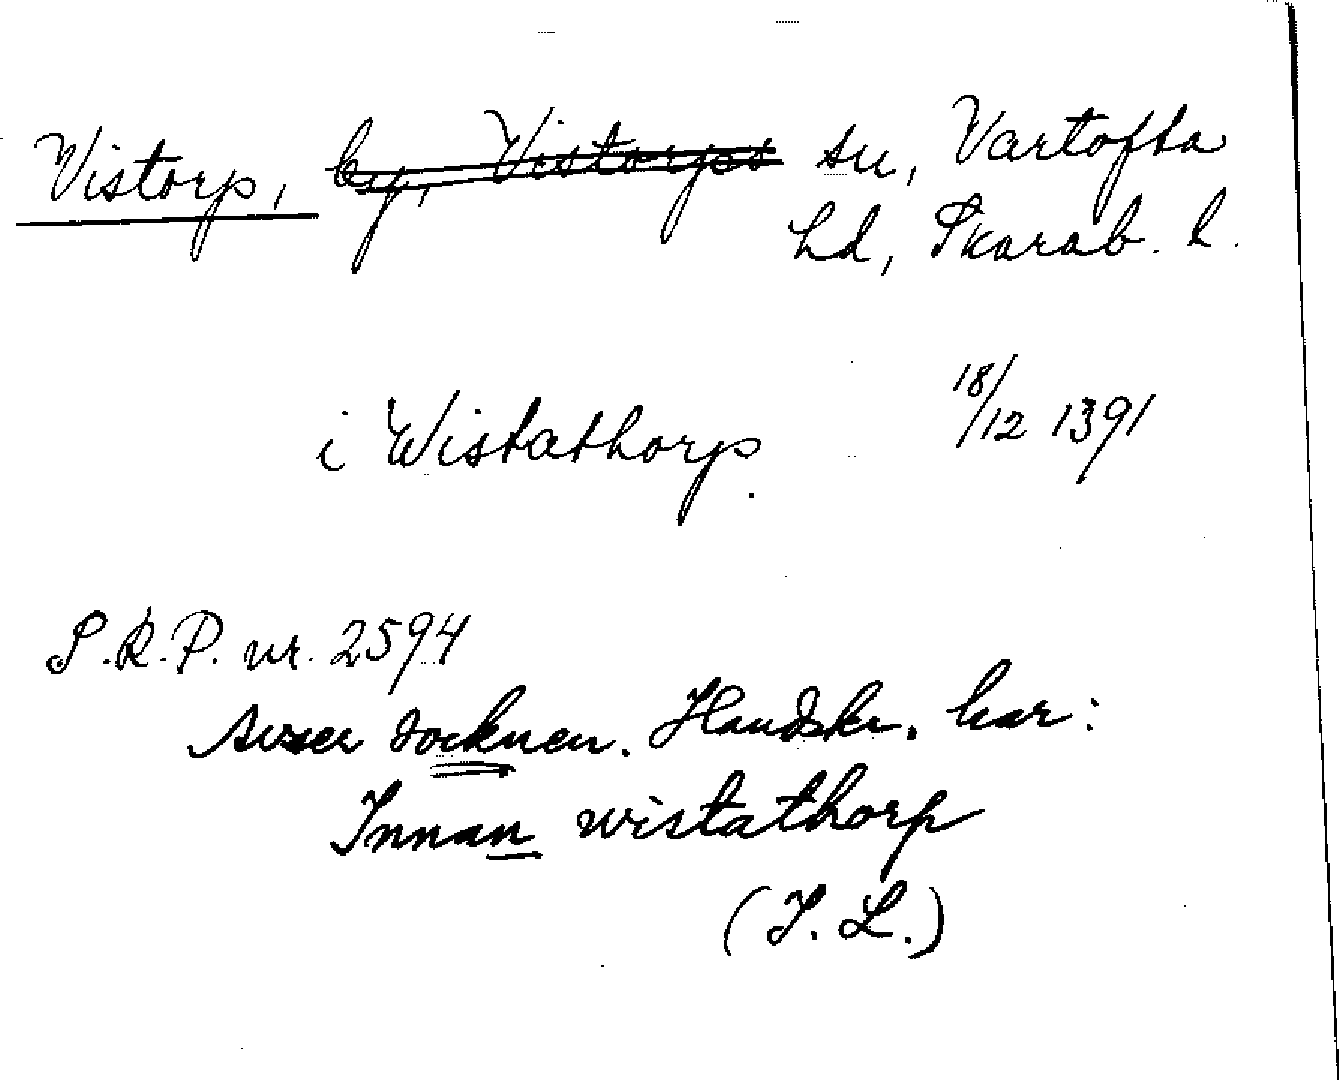 Vistorp, by, Vistorps sn, Vartofta
hd, Skarab. l.
i Wistathorp. 18/12 1391
S.R.P. nr. 2594
avser socknen. Handskr. har:
Innan wistathorp
(I. L.)